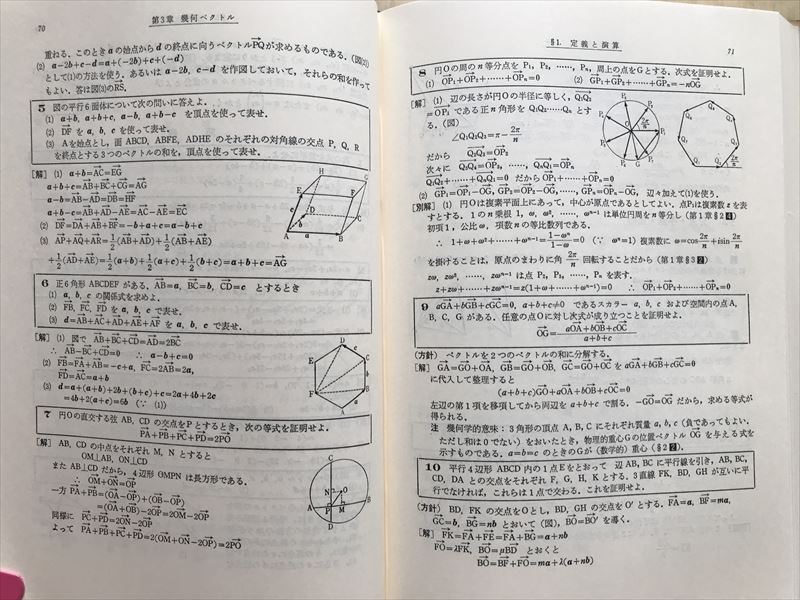 70
第3章 幾何ベクトル
重ねる.このときaの始点からdの終点に向うベクトルPQが求めるものである.(図(2))
(2) a-2b+c-d=a+(-2b)+c+(-d)
として(1)の方法を使う. あるいは a-2b, c-d を作図しておいて, それらの和を作って
もよい. 答は図(3)のRS.
5 図の平行6面体について次の問いに答えよ.
(1) a+b, a+b+c, a-b, a+b-c を頂点を使って表せ.
(2) DF を a, b, c を使って表せ.
(3) Aを始点とし, 面 ABCD, ABFE, ADHE のそれぞれの対角線の交点 P, Q, R
を終点とする3つのベクトルの和を, 頂点を使って表せ.
[解] (1) a+b=AC=EG
a+b+c=AB+BC+CG=AG
a-b=AB-AD=DB=HF
a+b-c=AB+AD-AE=AC-AE=EC
(2) DF=DA+AB+BF=-b+a+c=a-b+c
(3) AP+AQ+AR=1/2(AB+AD)+1/2(AB+AE)
+1/2(AD+AE)=1/2(a+b)+1/2(a+c)+1/2(b+c)=a+b+c=AG
H G E F D C A B a b c
6 正6角形 ABCDEF がある. AB=a, BC=b, CD=c とするとき
(1) a, b, c の関係式を求めよ.
(2) FB, FC, FD を a, b, c で表せ.
(3) d=AB+AC+AD+AE+AF を a, b, c で表せ.
[解] (1) 図で AB+BC+CD=AD=2BC
∴ AB-BC+CD=0 ∴ a-b+c=0
(2) FB=FA+AB=-c+a, FC=2AB=2a,
FD=AC=a+b
(3) d=a+(a+b)+2b+(b+c)+c=2a+4b+2c
=4b+2(a+c)=6b (∵ (1))
D c E C b F B A a
7 円Oの直交する弦 AB, CD の交点をPとするとき, 次の等式を証明せよ.
PA+PB+PC+PD=2PO
[解] AB, CD の中点をそれぞれ M, N とすると
OM⊥AB, ON⊥CD
また AB⊥CD だから, 4辺形 OMPN は長方形である.
∴ OM+ON=OP
一方 PA+PB=(OA-OP)+(OB-OP)
=(OA+OB)-2OP=2OM-2OP
同様に PC+PD=2ON-2OP
よって PA+PB+PC+PD=2(OM+ON-2OP)=2PO
C N O A P M B D
§1. 定義と演算
71
8 円Oの周の n 等分点を P1, P2, ……, Pn, 周上の点をGとする. 次式を証明せよ.
(1) OP1+OP2+……+OPn=0 (2) GP1+GP2+……+GPn=-nOG
[解] (1) 辺の長さが円Oの半径に等しく, Q1Q2
=OP1 である正 n 角形を Q1Q2……Qn とす
る. (図)
∠Q1Q2Q3=π-2π/n
だから Q2Q3=OP2
次々に Q3Q4=OP3, ……, QnQ1=OPn
Q1Q2+……+QnQ1=0 だから OP1+……+OPn=0
(2) GP1=OP1-OG, GP2=OP2-OG, ……, GPn=OPn-OG, 辺々加えて(1)を使う.
[別解] (1) 円Oは複素平面上にあって, 中心が原点であるとしてよい. 点P1は複素数 z を表
すとする. 1の n 乗根 1, ω, ω², ……, ωⁿ⁻¹ は単位円周を n 等分し (第1章§2 4)
初項1, 公比ω, 項数 n の等比数列である.
∴ 1+ω+ω²+……+ωⁿ⁻¹=1-ωⁿ/1-ω=0 (∵ ωⁿ=1) 複素数に ω=cos2π/n+isin2π/n
を掛けることは, 原点のまわりに角 2π/n 回転することだから (第1章§3 2)
zω, zω², ……, zωⁿ⁻¹ は点 P2, P3, ……, Pn を表す.
z+zω+……+zωⁿ⁻¹=z(1+ω+……+ωⁿ⁻¹)=0 ∴ OP1+OP2+……+OPn=0
9 aGA+bGB+cGC=0, a+b+c≠0 であるスカラー a, b, c および空間内の点A,
B, C, G がある. 任意の点Oに対し次式が成り立つことを証明せよ.
OG=aOA+bOB+cOC/a+b+c
(方針) ベクトルを2つのベクトルの和に分解する.
[解] GA=GO+OA, GB=GO+OB, GC=GO+OC を aGA+bGB+cGC=0
に代入して整理すると
(a+b+c)GO+aOA+bOB+cOC=0
左辺の第1項を移項してから両辺を a+b+c で割る. -GO=OG だから, 求める等式が
得られる.
注 幾何学的意味: 3角形の頂点 A, B, C にそれぞれ質量 a, b, c (負であってもよい,
ただし和は0でない) をおいたとき, 物理的重心Gの位置ベクトル OG を与える式を
示すものである. a=b=c のときのGが(数学的)重心 (§2 2).
10 平行4辺形 ABCD 内の1点Eをとおって 辺 AB, BC に平行線を引き, AB, BC,
CD, DA との交点をそれぞれ F, G, H, K とする. 3直線 FK, BD, GH が互いに平
行でなければ, これらは1点で交わる. これを証明せよ.
(方針) BD, FK の交点をOとし, BD, GH の交点を O′ とする. FA=a, BF=ma,
GC=b, BG=nb とおいて (図), BO=BO′ を導く.
[解] FK=FA+FE=FA+BG=a+nb
FO=λFK, BO=μBD とおくと
BO=BF+FO=ma+λ(a+nb)